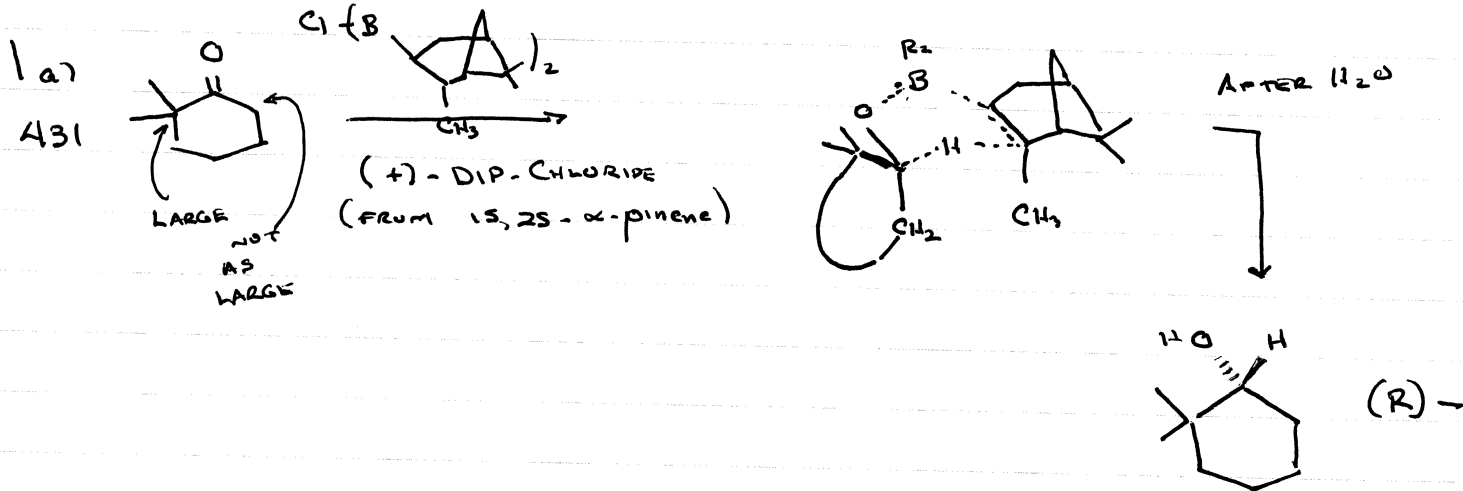 1 a)
431
O
LARGE
NOT
AS
LARGE
Cl-(B
)2
CH3
(+)-DIP-CHLORIDE
(FROM 1S,2S-α-pinene)
R2
B
O
H
CH2
CH3
AFTER H2O
HO H
(R)-